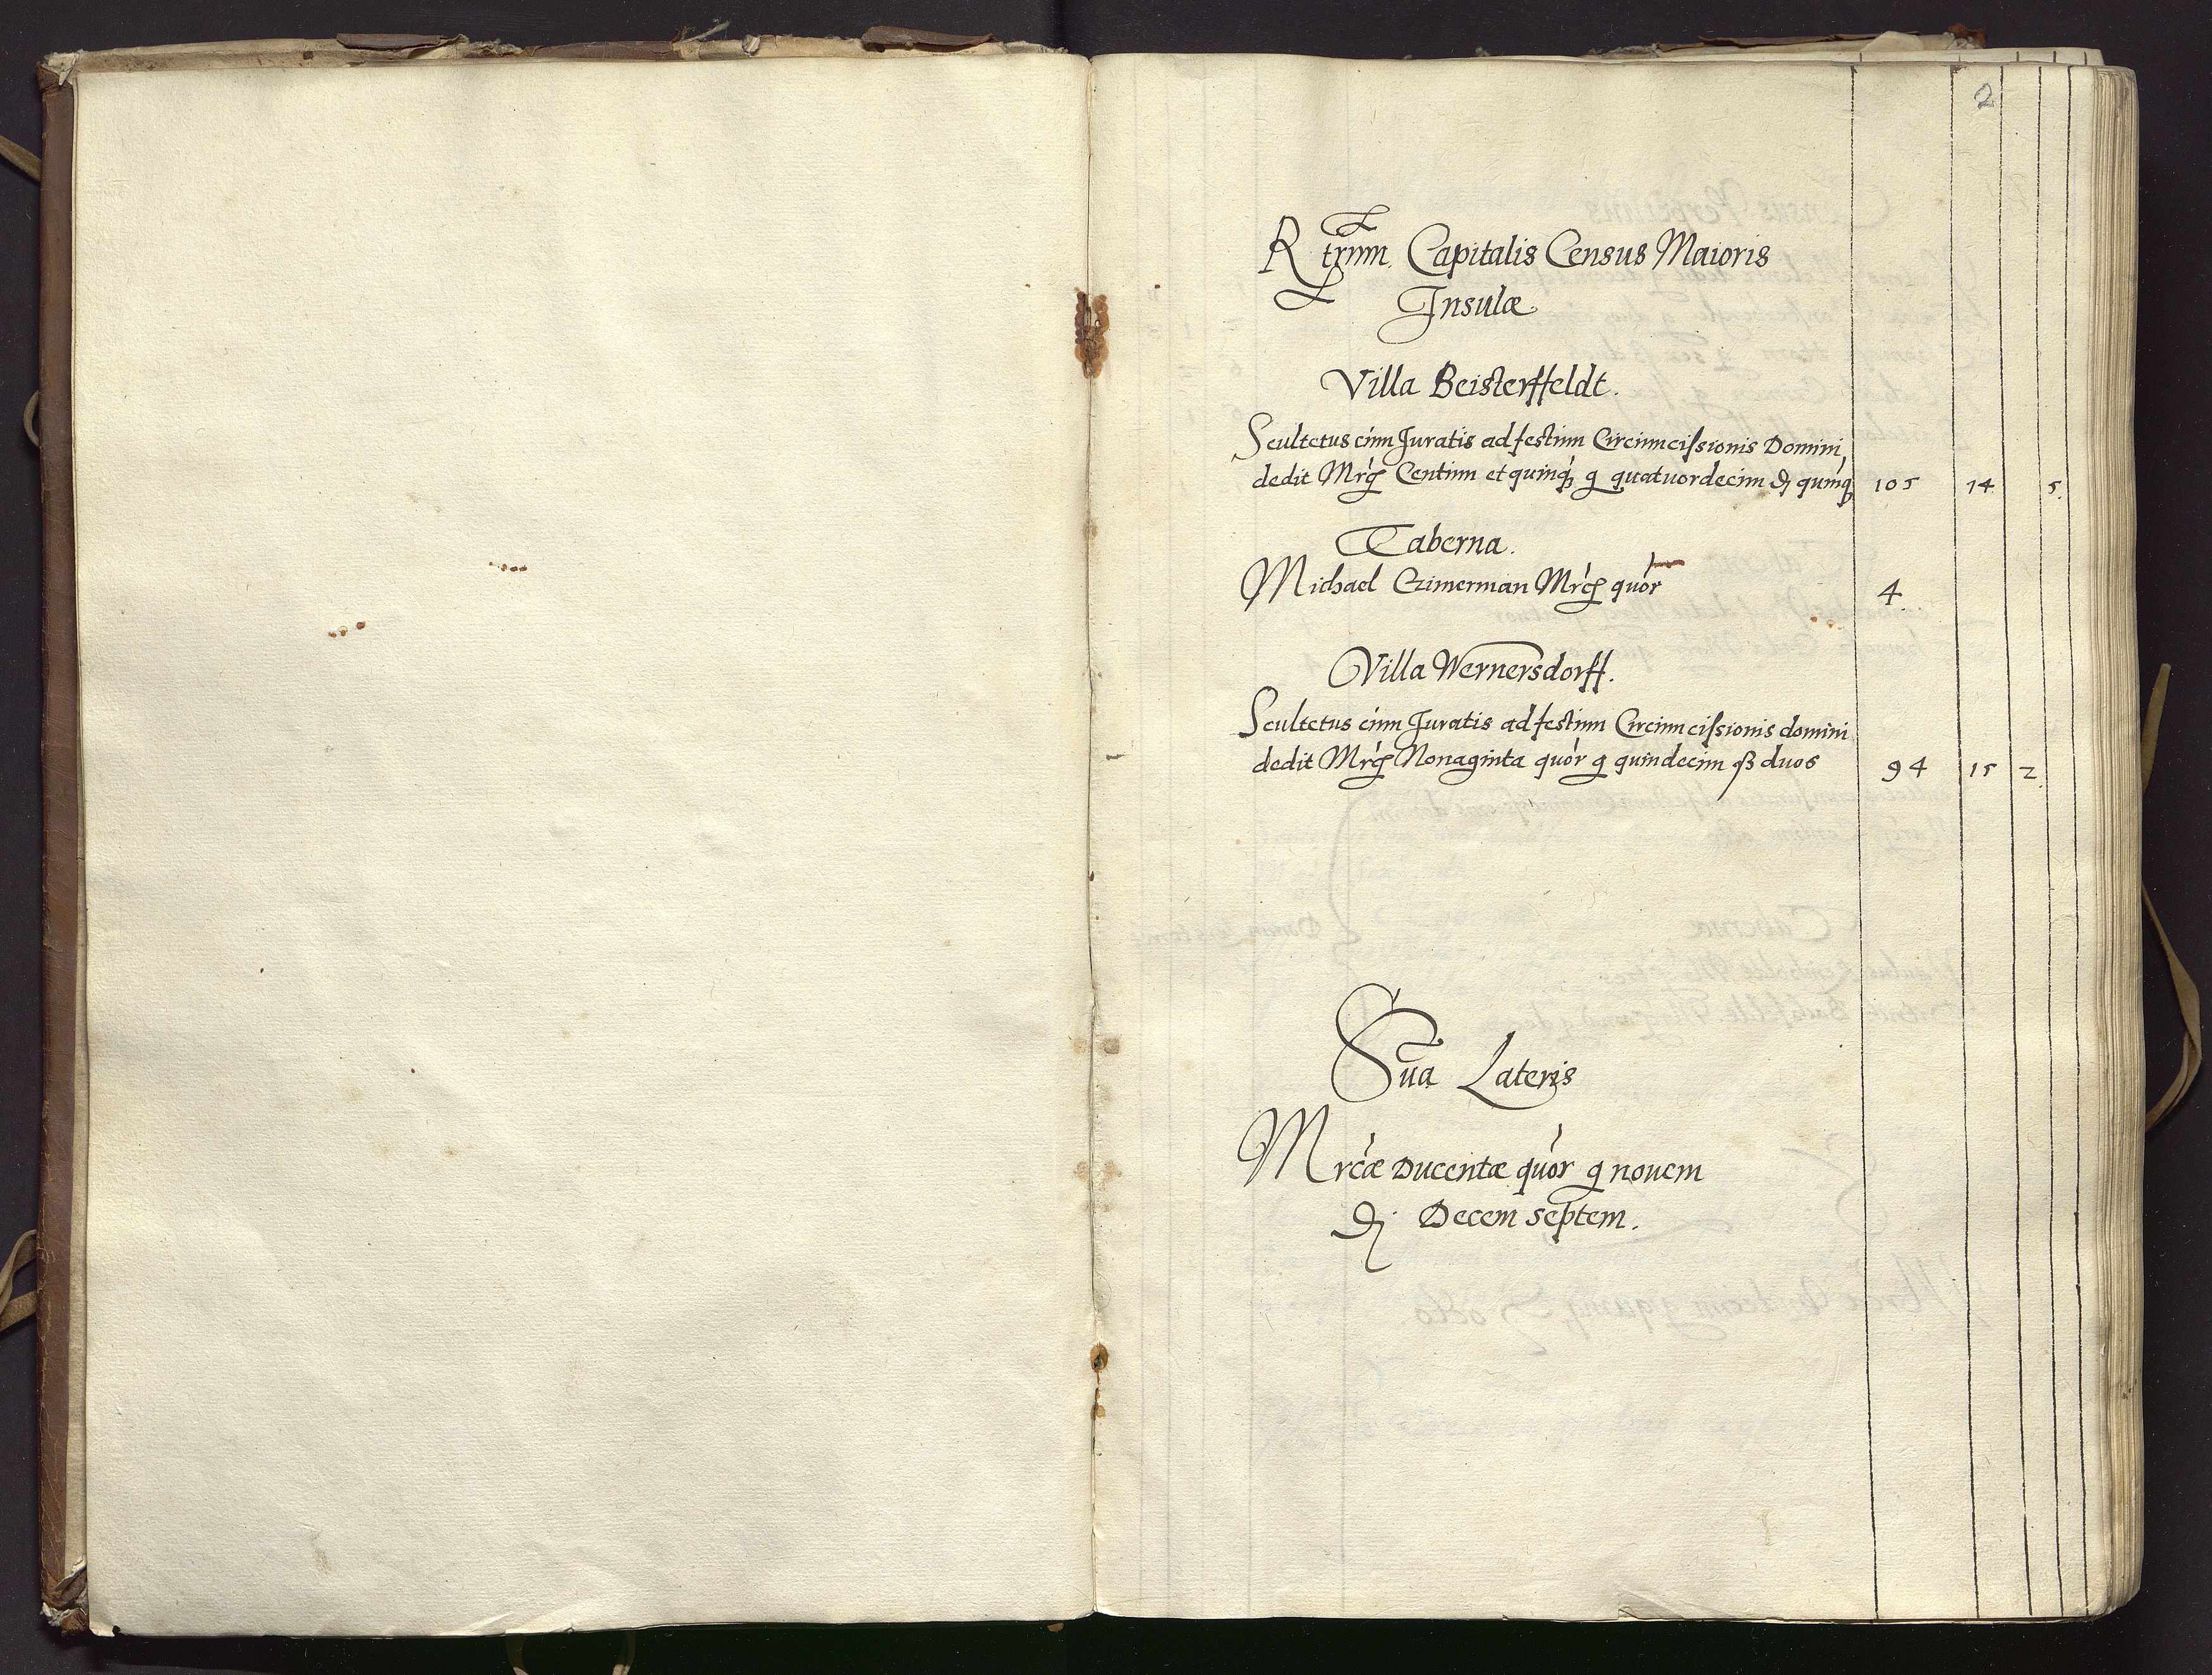 2
Rtrum Capitalis Census Maioris
Insulæ
Villa Beisterffeldt.
Scultetus cum Juratis ad festum Circumcissionis Domini
dedit Mrcę Centum et quinq₃ g quatuordecim ₰ quinq₃ 105 14 5.
Taberna.
Michael Czimerman Mrcę quor 4.
Villa Wernersdorff.
Scultetus cum Juratis ad festum Circumcissionis domini
dedit Mrcę Nonaginta quor g quindecim ß duos 94 15 2.
Sua Lateris
Mrcæ Ducentæ quor g nouem
₰ Decem septem.